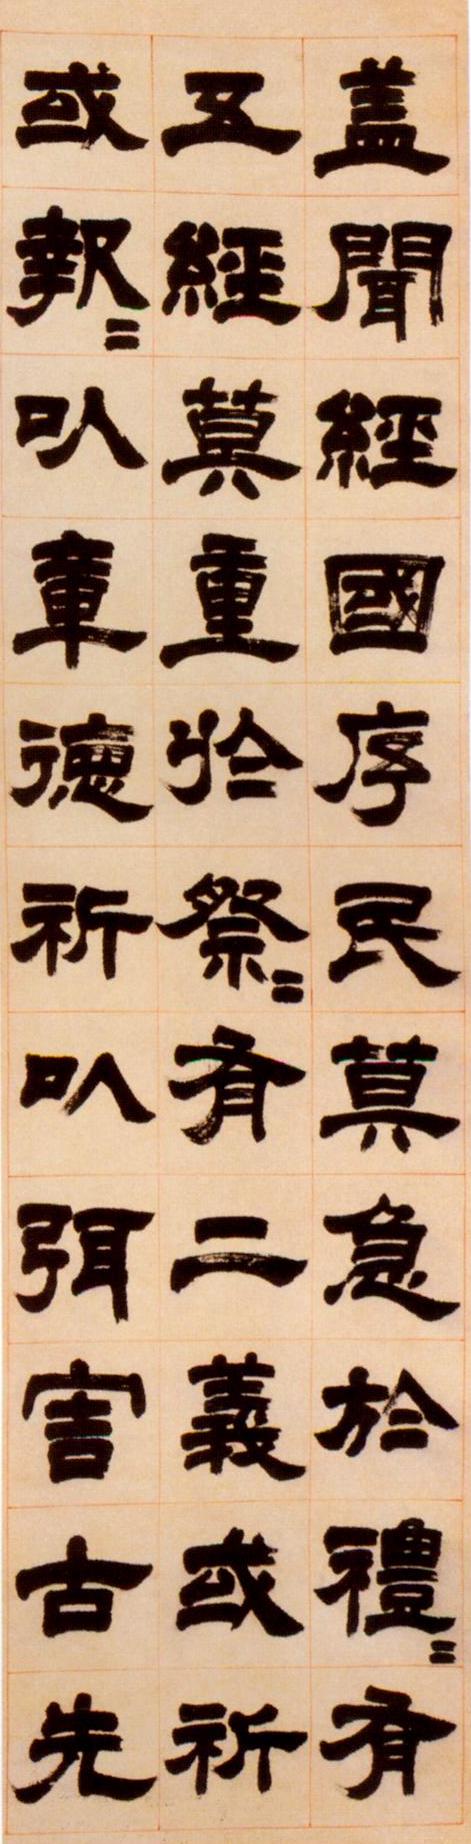 盖聞經國序民莫急於禮〻有
五經莫重於祭〻有二義或祈
或報〻以章德祈以弭害古先